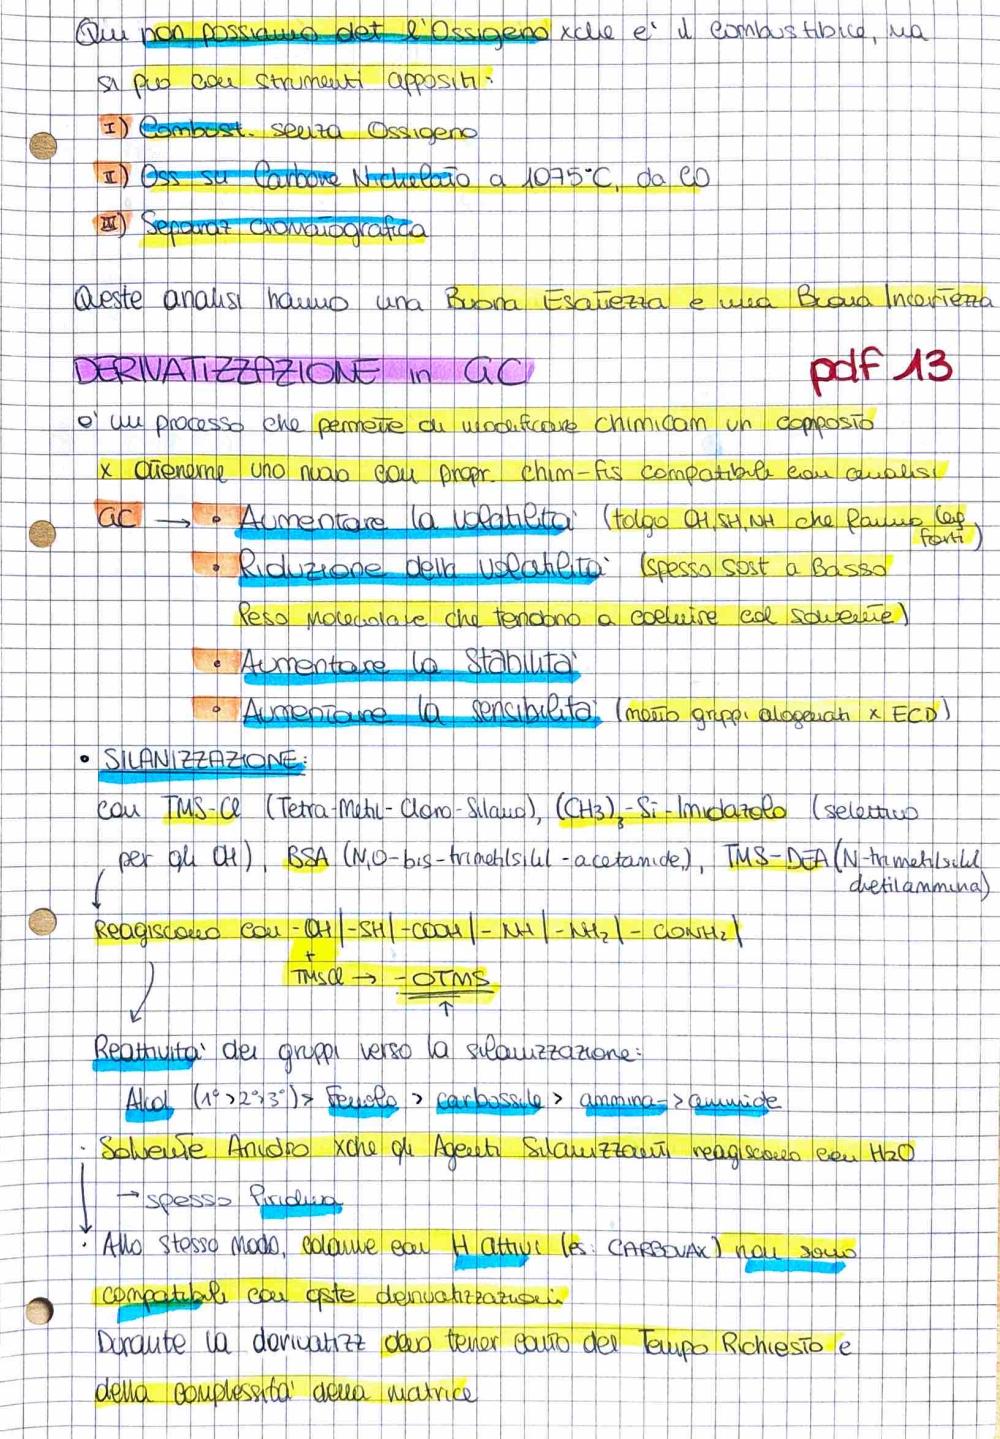 Qui non possiamo det l'Ossigeno xche e' il combustibile, ma
si può con strumenti appositi:
I) Combust. senza Ossigeno
II) Oss su Carbone Nichelato a 1075°C, da CO
III) Separaz cromatografica
Queste analisi hanno una Buona Esattezza e una Buona Incertezza
DERIVATIZZAZIONE in GC pdf 13
e' un processo che permette di modificare chimicam un composto
x ottenerne uno nuovo con propr. chim-fis compatibili con analisi
GC → • Aumentare la volatilità (tolgo OH, SH, NH che fanno leg forti)
• Riduzione della volatilità (spesso sost a Basso
Peso molecolare che tendono a coeluire col solvente)
• Aumentare la Stabilità
• Aumentare la sensibilità (metto gruppi alogenati x ECD)
• SILANIZZAZIONE:
con TMS-Cl (Tetra-Metil-Cloro-Silano), (CH3)3-Si-Imidazolo (selettivo
per gli OH), BSA (N,O-bis-trimetilsilil-acetamide), TMS-DEA (N-trimetilsilil
dietilammina)
Reagiscono con -OH|-SH|-COOH|-NH|-NH2|-CONH2|
+
TMSCl → -OTMS
↑
Reattività dei gruppi verso la silanizzazione:
Alcol (1°>2°>3°)> Fenolo > carbossile > ammina-> ammide
• Solvente Anidro xche gli Agenti Silanizzanti reagiscono con H2O
→ spesso Piridina
• Allo stesso modo, colonne con H attivi (es: CARBOVAX) non sono
compatibili con qste derivatizzazioni
Durante la derivatizz devo tener conto del Tempo Richiesto e
della complessità della matrice